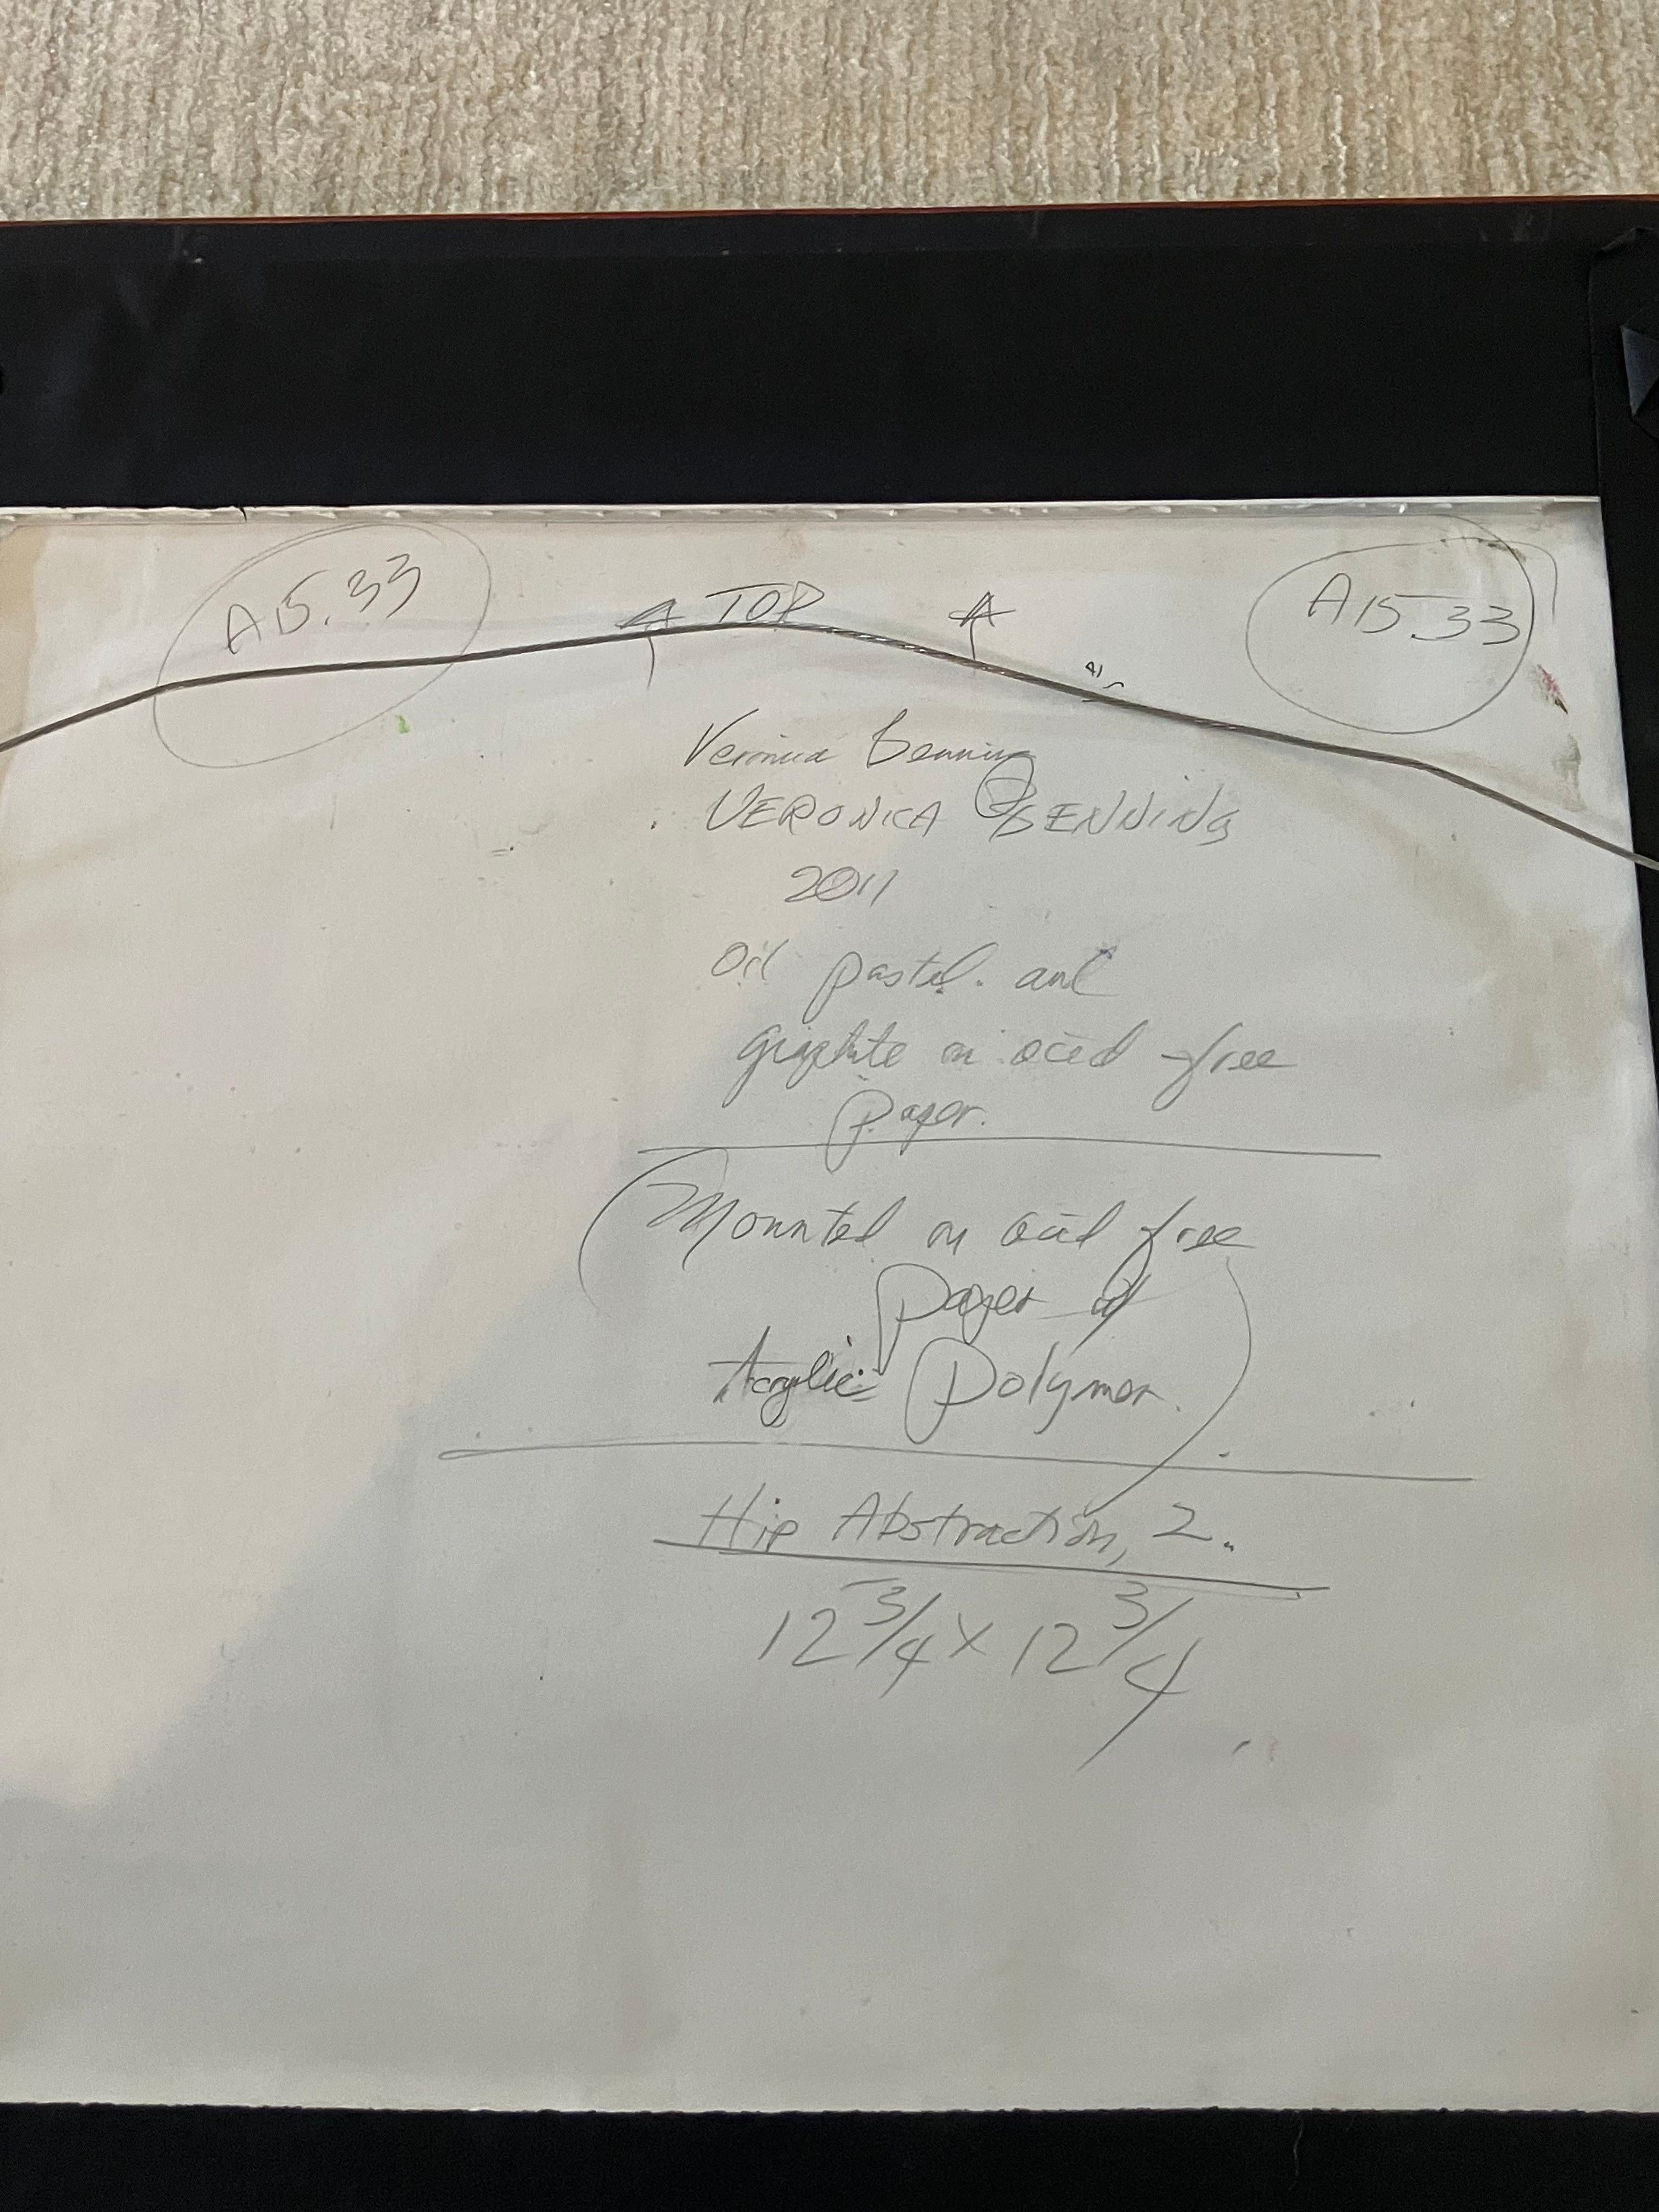 A15.33
TOP
A15.33
Veronica Benning
VERONICA BENNING
2011
Oil pastel and
graphite on acid-free
paper.
(Mounted on acid free
paper w/
Acrylic Polymer.)
Hip Abstraction, 2.
12 3/4 x 12 3/4